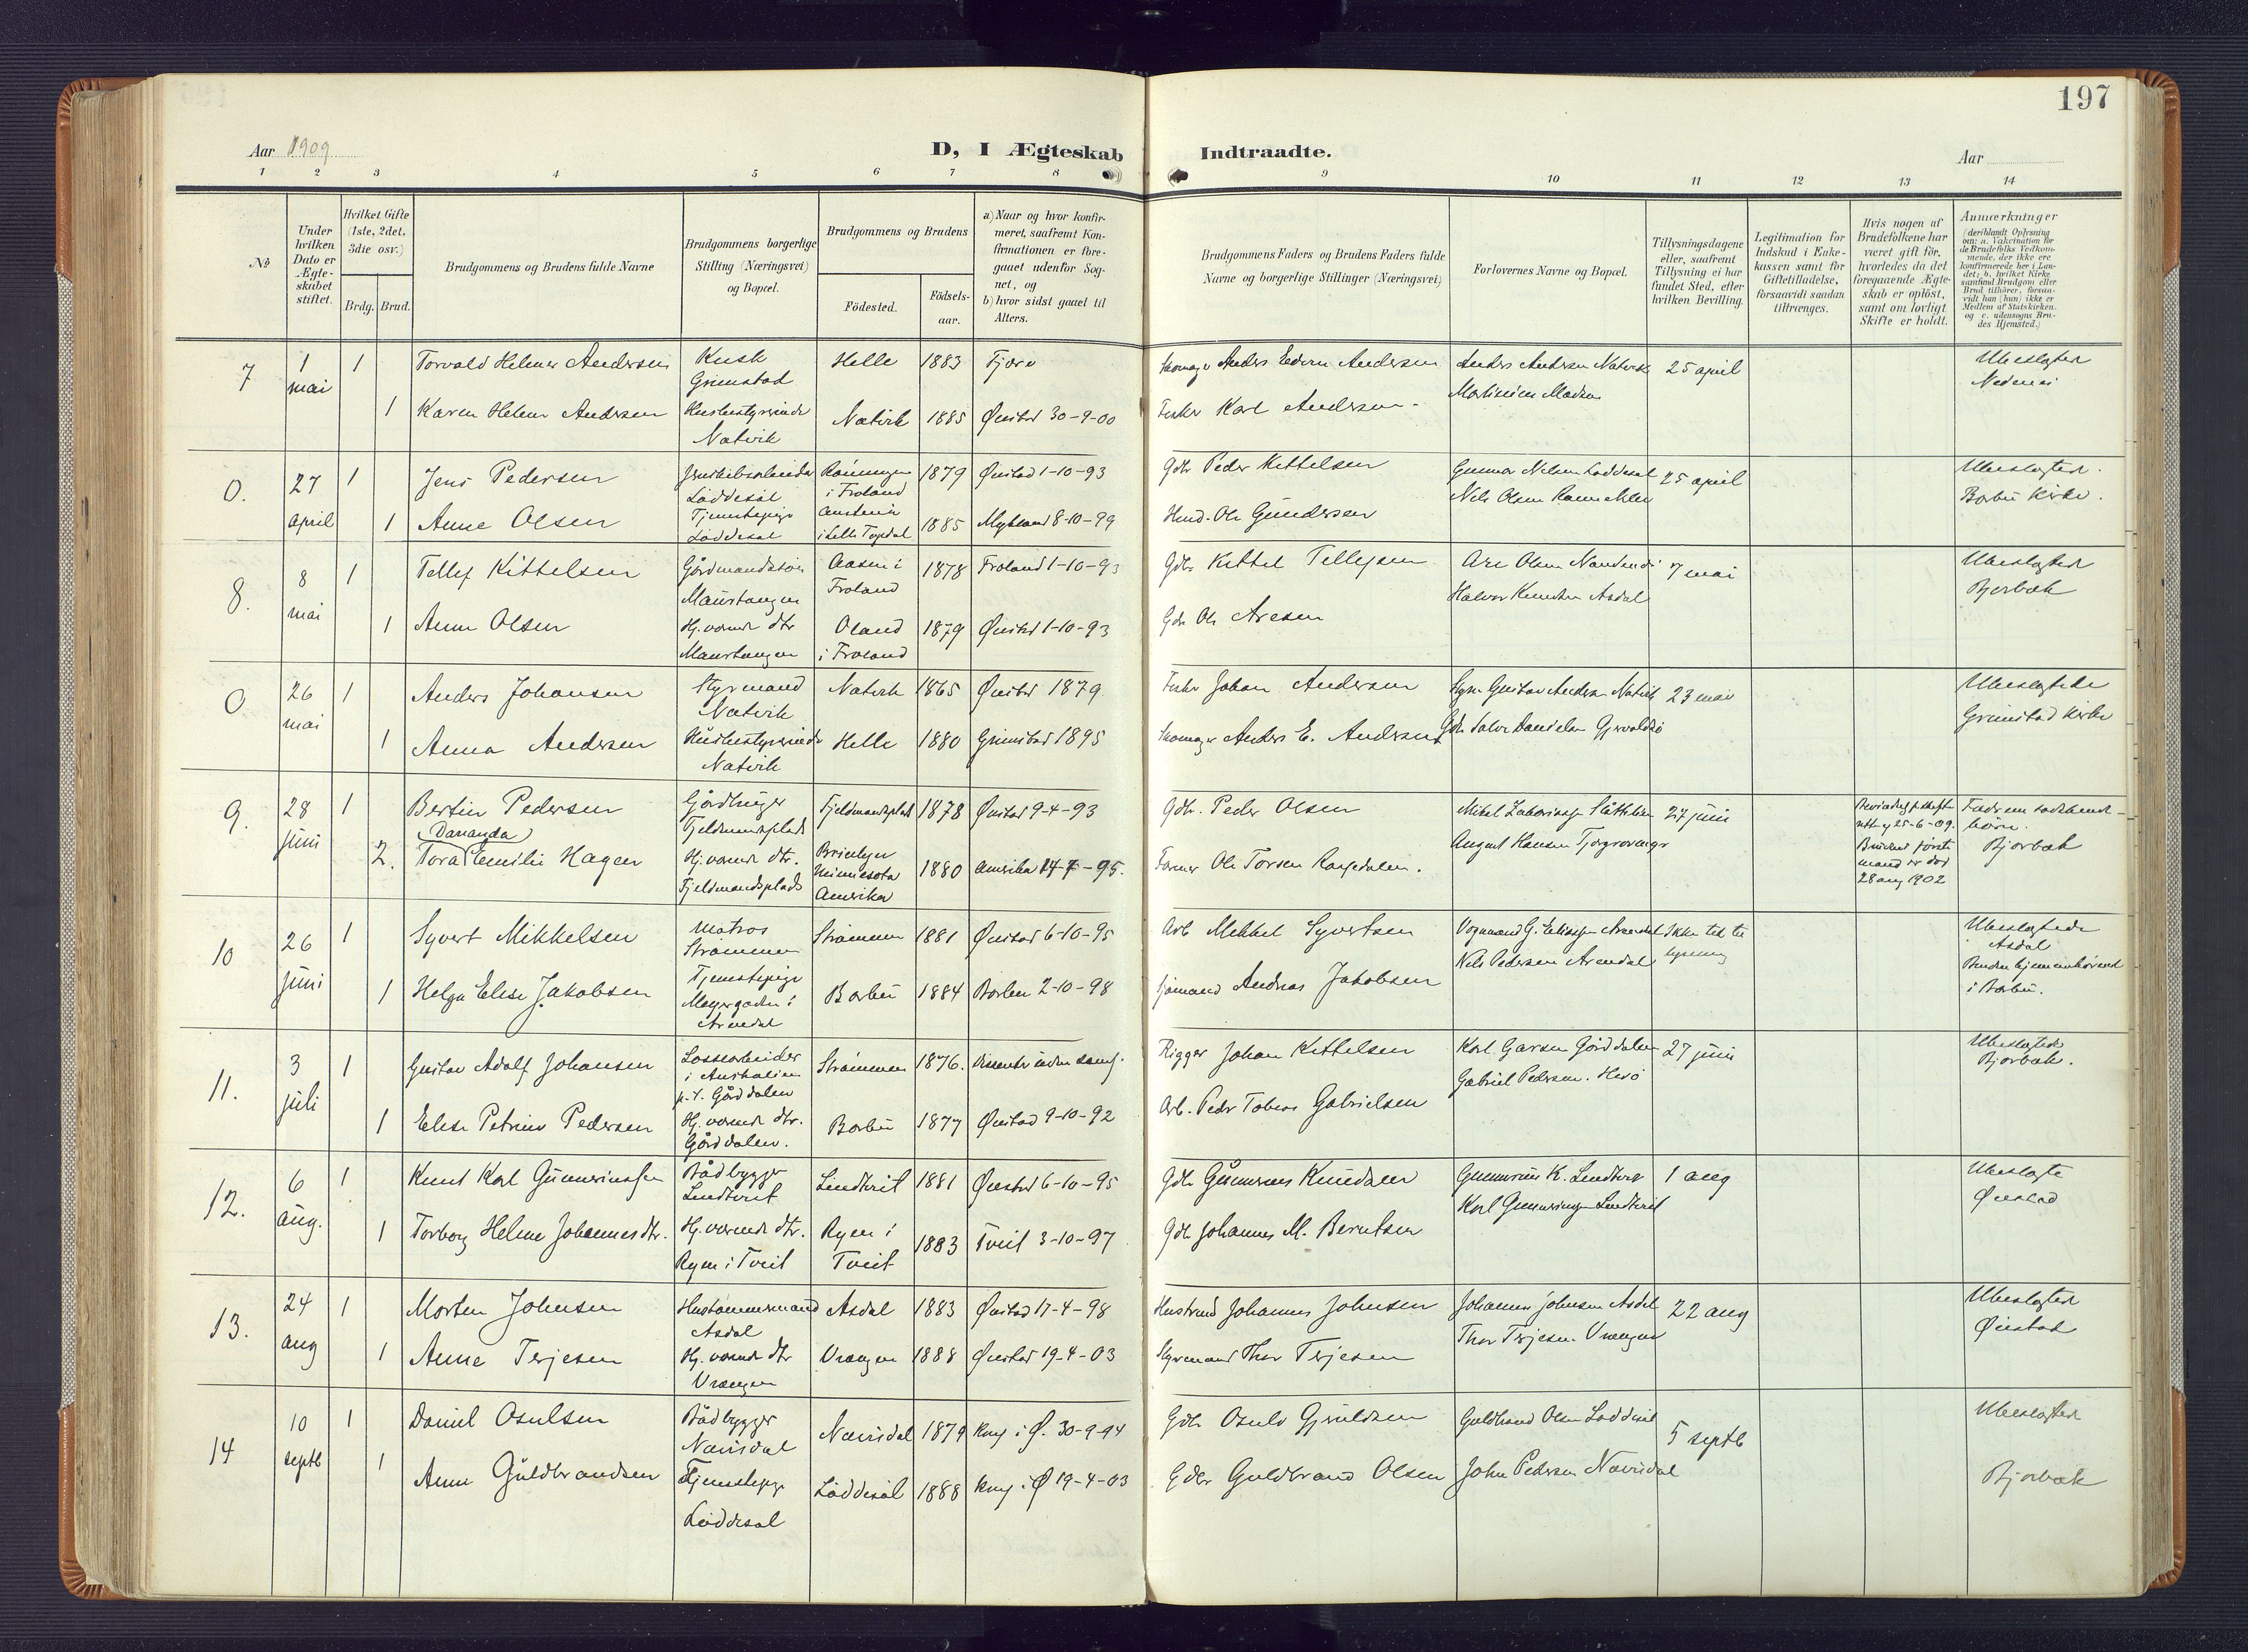 197
Aar 1909
D, I Ægteskab Indtraadte.
Aar
1 2 3 4 5 6 7 8 9 10 11 12 13 14
№
Under
hvilken
Dato er
Ægte-
skabet
stiftet.
Hvilket Gifte
(1ste, 2det,
3die osv.)
Brdg. Brud.
Brudgommens og Brudens fulde Navne
Brudgommens borgerlige
Stilling (Næringsvei)
og Bopæl.
Brudgommens og Brudens
Födested.
Födsels-
aar.
a) Naar og hvor konfir-
meret, saafremt Kon-
firmationen er fore-
gaaet udenfor Sog-
net, og
b) hvor sidst gaaet til
Alters.
Brudgommens Faders og Brudens Faders fulde
Navne og borgerlige Stillinger (Næringsvei)
Forlovernes Navne og Bopæl.
Tillysningsdagene
eller, saafremt
Tillysning ei har
fundet Sted, efter
hvilken Bevilling.
Legitimation for
Indskud i Enke-
kassen samt for
Giftetilladelse,
forsaavidt saadan
tiltrænges.
Hvis nogen af
Brudefolkene har
været gift för,
hvorledes da det
foregaaende Ægte-
skab er oplöst,
samt om lovligt
Skifte er holdt.
Anmærkninger
(deriblandt Oplysning
om: a. Vakcination for
de Brudefolks Vedkom-
mende, der ikke ere
konfirmerede her i Lan-
det; b. hvilket Kirke
samfund Brudgom eller
Brud tilhører, forsaa-
vidt han (hun) ikke er
Medlem af Statskirken.
og c. udensogns Bru-
des Hjemsted.)
7 1 mai 1 Torvald Helmer Andersen Kusk Grimstad Helle 1883 Fjære
Anders Edvin Andersen Anders Andersen Natvik 25 april Ubeslægted
1 Karen Helene Andersen Husbestyrerinde Natvik Natvik 1885 Øiestad 30-9-00
Fisker Karl Andersen Martinius Madsen
0. 27 april 1 Jens Pedersen Løddesøl i Froland 1879 Øiestad 1-10-93
Gdb. Peder Kittelsen Gunnar Nilsen Løddesøl 25 april Ubeslægted. Barbu Kirke.
1 Anne Olsen Tjenestepige Løddesøl 1885 Mykland 8-10-99
Husmd. Ole Gundersen Nils Olsen
8. 8 mai 1 Tellef Kittelsen Gårdmandssøn Maurtangen Aasen i Froland 1878 Froland 1-10-93
Gdb. Kittel Tellefsen Are Olsen 7 mai Ubeslægted Bjorbæk
1 Anne Olsen Hj. værende dtr Maurtangen Øland i Froland 1879 Øiestad 1-10-93
Gdb. Ole Aresen Halvor Knudsen Asdal
0 26 mai 1 Anders Johansen Styrmand Natvik Natvik 1865 Øiestad 1879
Fisker Johan Andersen Gustav Andersen Natvik 23 mai Ubeslægtede Grimstad kirke
1 Anna Andersen Husbestyrerinde Natvik Helle 1880 Grimstad 1895
Anders E. Andersen Gdb. Salve Danielsen
9. 28 juni 1 Bertin Pedersen Gårdbruger Fjeldmandsplads Fjeldmandsplads 1878 Øiestad 9-4-93
Gdb. Peder Olsen 27 juni 25-6-09. Brudens første mand er død 28 aug 1902 Bjorbæk
2. Tora (Dananda) Emilie Hagen Hj. værende dtr. Fjeldmandsplads Minnesota Amerika 1880 Amerika 14-7-95.
Farmer Ole Torsen August Hansen
10 26 juni 1 Syvert Mikkelsen Matros Strømmen Strømmen 1881 Øiestad 6-10-95
Arb. Mikkel Syvertsen Vognmand G. Arendal Ikke til lysning Ubeslægtede Asdal
1 Helga Elise Jakobsen Tjenestepige i Arendal Barbu 1884 Barbu 2-10-98
Sjømand Andreas Jakobsen Nils Pedersen Arendal Bruden hjemmehørende i Barbu.
11. 3 juli 1 Gustav Adolf Johansen Lossearbeider i Australien p.t. Gårddalen Strømmen 1876.
Rigger Johan Kittelsen Karl Garsen Gårddalen 27 juni Ubeslægtede Bjorbæk.
1 Elise Petrine Pedersen Hj. værende dtr. Gårddalen. Barbu 1877 Øiestad 9-10-92
Arb. Peder Tobias Gabrielsen Gabriel Pedersen. Hisø
12. 6 aug. 1 Knut Karl Gunnerinssen Bådbygger Lindtveit Lindtveit 1881 Øiestad 6-10-95
Gdb. Gunnerius Knudsen Gunnerius K. Lindtveit 1 aug Ubeslægte Øiestad
1 Torborg Helene Johannesdtr. Hj. værende dtr. Ryen i Tveit Ryen i Tveit 1883 Tveit 3-10-97
Gdb. Johannes M. Berntsen Karl Gunneriusen Lindtveit
13. 24 aug 1 Morten Johnsen Hustømmermand Asdal Asdal 1883 Øiestad 17-4-98
Johannes Johnsen Johannes Johnsen Asdal 22 aug Ubeslægted Øiestad
1 Anne Terjesen Hj. værende dtr Vrengen Vrengen 1888 Øiestad 19-4-03
Styrmand Thor Terjesen Thor Terjesen Vrengen
14 10 septb 1 Daniel Osulsen Bådbygger Nævisdal Nævisdal 1879 Knf i Ø. 30-9-94
Gdb. Osulv Gjruldsen Guldbrand Olsen Løddesøl 5 septb Ubeslægted
1 Anne Guldbrandsen Tjenestepige Løddesøl Løddesøl 1888 Knf i Ø 19-4-03
Gdbr Guldbrand Olsen John Pedersen Nævisdal Bjorbæk